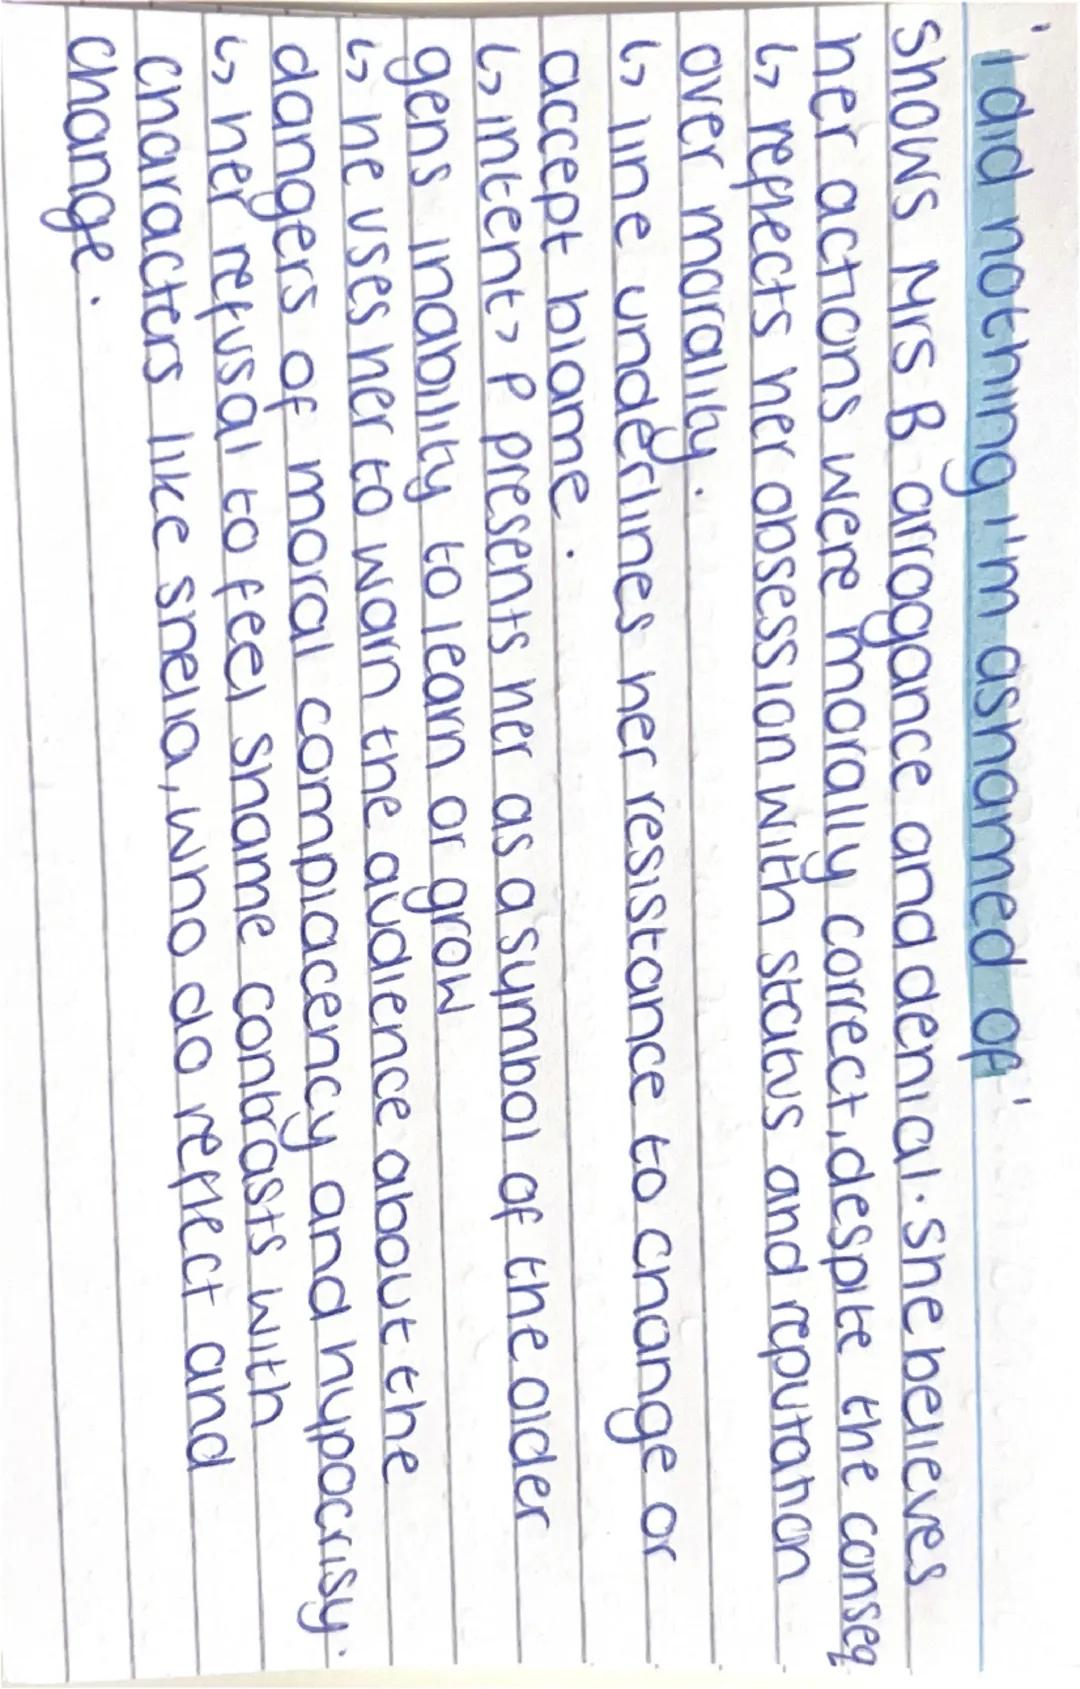 'i did nothing i'm ashamed of'
shows Mrs B arrogance and denial. she believes
her actions were morally correct, despite the conseq
↳ reflects her obsession with status and reputation
over morality.
↳ line underlines her resistance to change or
accept blame.
↳ intent > P presents her as a symbol of the older
gens inability to learn or grow
↳ he uses her to warn the audience about the
dangers of moral complacency and hypocrisy.
↳ her refusal to feel shame contrasts with
characters like sheila, who do reflect and
change.